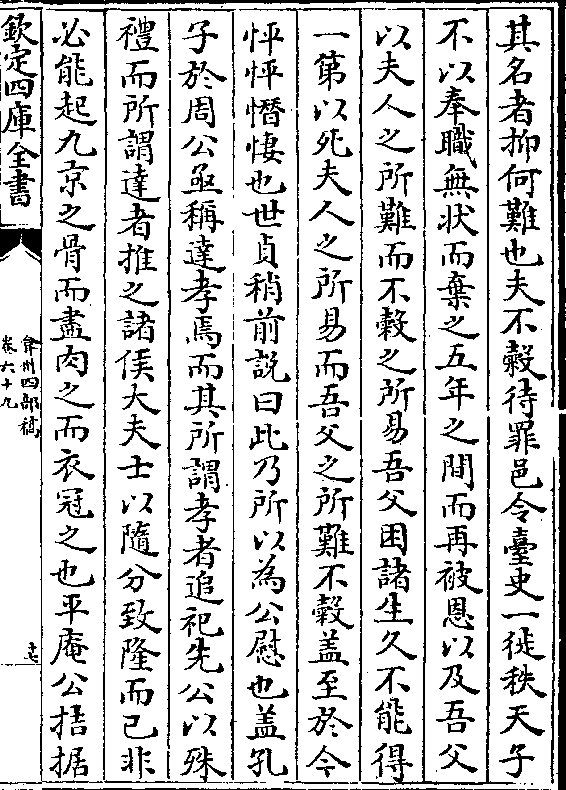 其名者抑何難也夫不穀待罪邑令臺史一徙秩天子
不以奉職無状而棄之五年之間而再被恩以及吾父
以夫人之所難而不穀之所易吾父困諸生久不能得
一第以死夫人之所易而吾父之所難不穀盖至於今
怦怦㬱悽也世貞稍前説曰此乃所以為公慰也盖孔
子於周公亟稱達孝焉而其所謂孝者追祀先公以殊
禮而所謂達者推之諸侯大夫士以隨分致隆而已非
必能起九京之骨而盡肉之而衣冠之也平庵公拮据
欽定四庫全書
弇州四部稿
卷六十九
十七